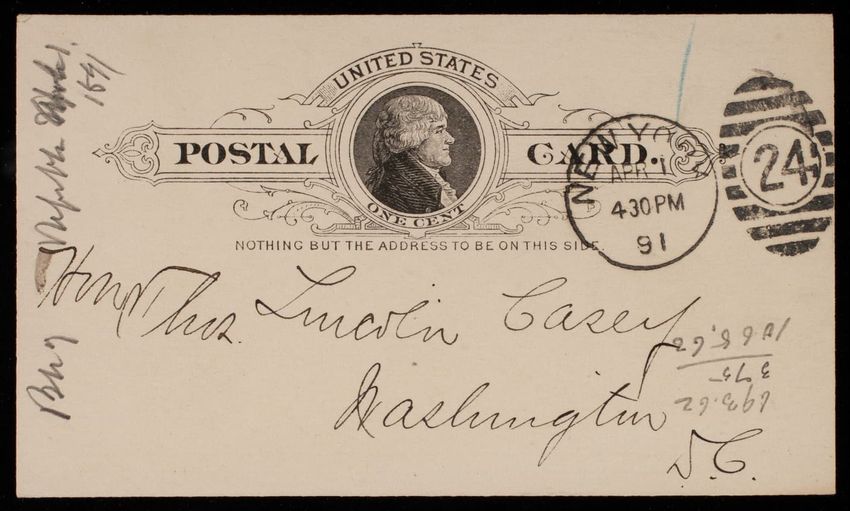 UNITED STATES
POSTAL CARD.
ONE CENT
NOTHING BUT THE ADDRESS TO BE ON THIS SIDE.
NEW YORK
APR 1
430PM
91
24
Hon Thos. Lincoln Casey
Washington
D.C.
1891
693.62
375
1068.62